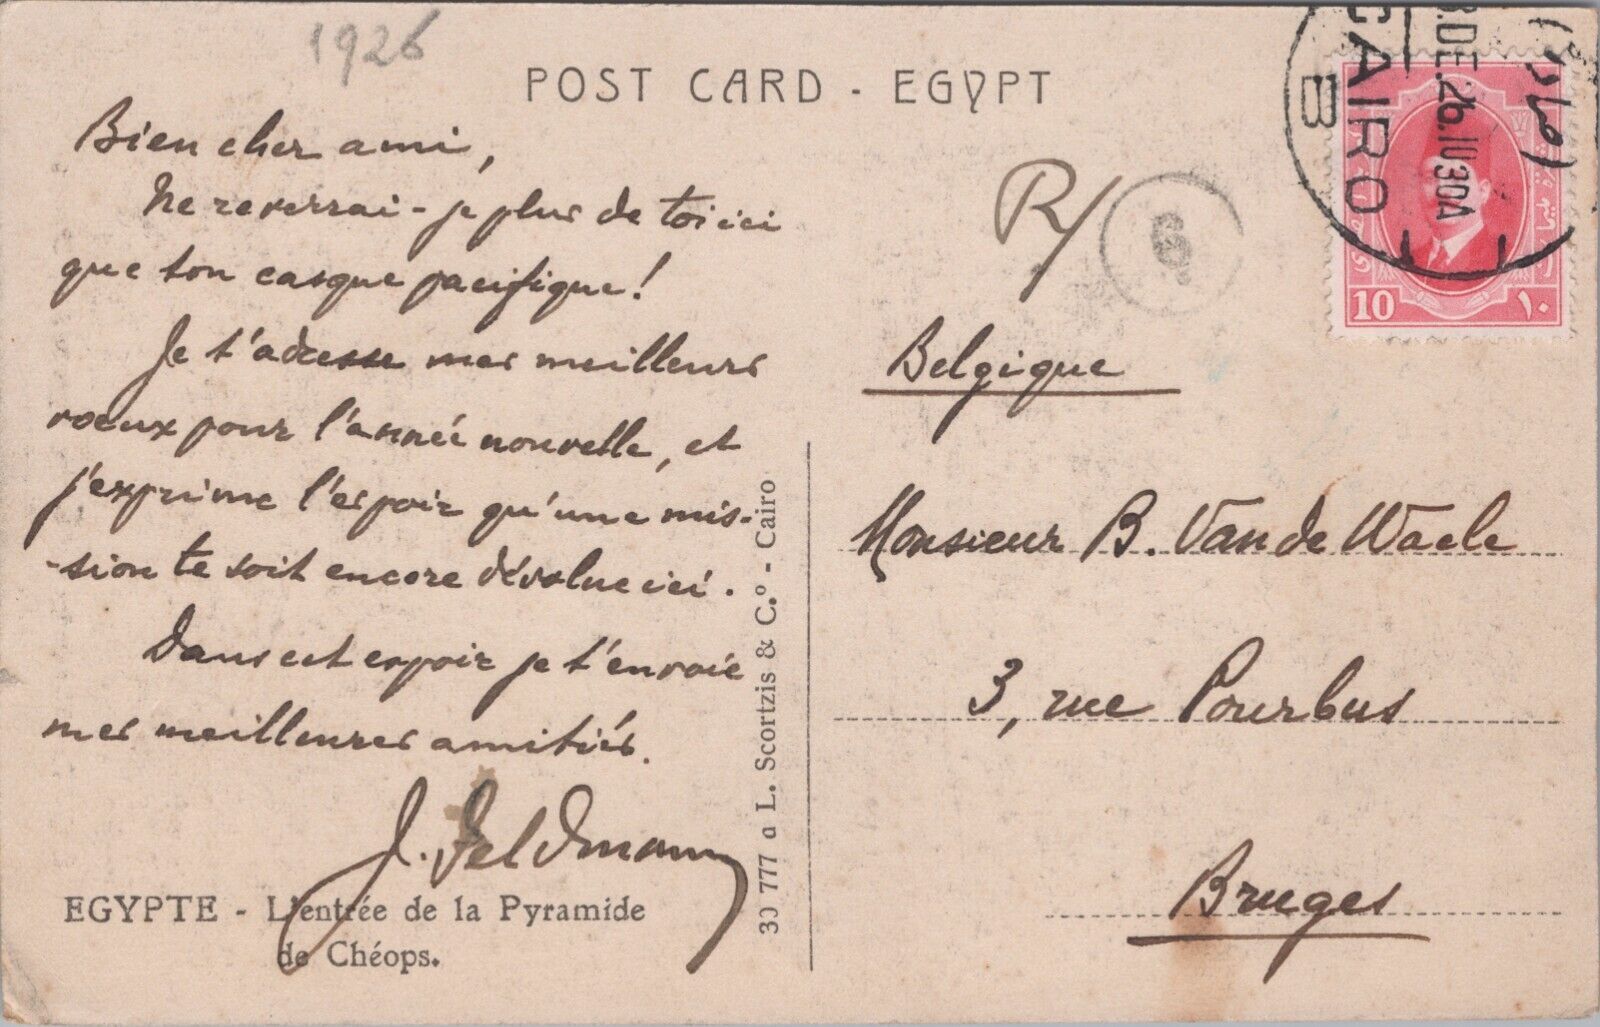 1926
POST CARD - EGYPT
Bien cher ami,
Ne reverrai-je plus de toi ici
que ton casque pacifique!
Je t'adresse mes meilleurs
voeux pour l'année nouvelle, et
j'exprime l'espoir qu'une mis-
-sion te soit encore dévolue ici.
Dans cet espoir je t'envoie
mes meilleures amitiés.
J. Feldmann
EGYPTE - L'entrée de la Pyramide
de Chéops.
30 777 a L. Scortzis & C.º - Cairo
CAIRO
B
DE.26.1030A
10
١٠
R/
6
Belgique
Monsieur B. Van de Waele
3, rue Pourbus
Bruges